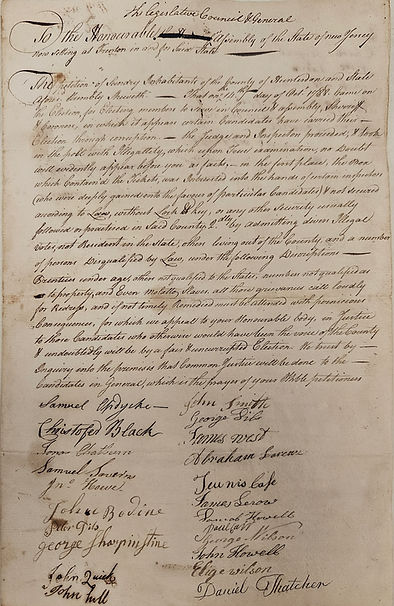 The Legislative Council & General
To the Honourable Assembly of the State of new Jersey
now sitting at Trenton in and for said State
The petition of Sundry Inhabitants of the County of Hunterdon and State
afore, humbly Sheweth — That on the 14th day of Octr 1788 Came on
the Election, for Electing members to Serve in Council & assembly, Sherriff &
Coroners, in which it appears certain Candidates have carried their
Election through corruption — the Judge and Inspectors proceeded, & took
in the poll with Illegallity, which upon Trial examination, no Doubt
will evidently appear before you as facts, — in the first place, the Box
which Contain'd the Tickets, was Intrusted into the hands of certain inspectors
(who were deeply gained into the favour of particular Candidates) & not secured
according to Law, without Lock & key, or any other security usually
followed or practised in Said County, 2dly by admitting down Illegal
votes, not Resident in the State, others living out of the County, and a number
of persons Disqualified by Law, under the following Descriptions —
Prentices under age, others not qualified to the State, a number not qualified as
to property, and Even Molatto Slaves, all those grievances call loudly
for Redress, and if not timely Remedied must be attended with pernicious
Consequences, for which we appeal to your Honourable body, in Justice
to those Candidates who otherwise would have been the voice of the County
& undoubtedly will be by a fair & uncorrupted Election. We trust by
Inquiry into the premises that Common Justice will be done to the
Candidates in General, which is the prayer of your Hble petitioners
Samuel Opdycke
Christofer Black
Samuel
Jno
John Bodine
George Sharpinstine
John Quick
John hull
John Smith
George
James west
Abraham Larew
Teunis Case
James Larow
Samuel Howell
George Wilson
John Howell
Elige wilson
Daniel Thatcher